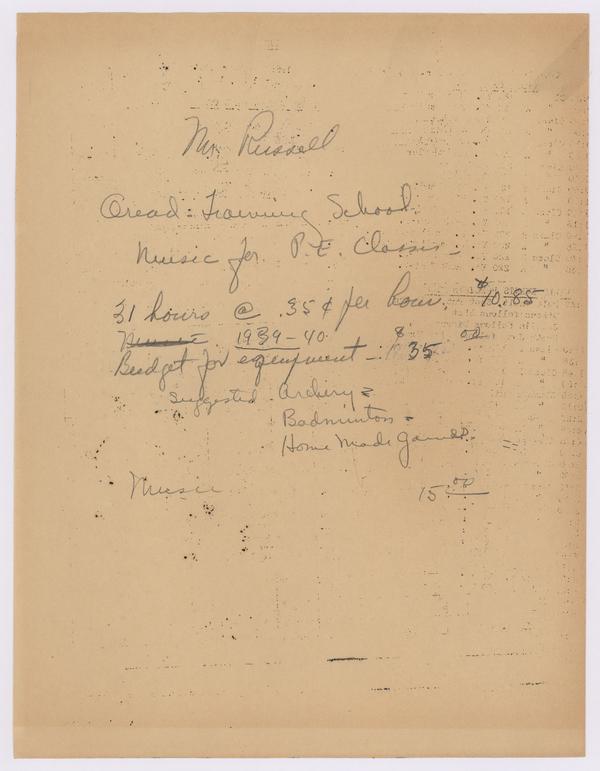 Mr. Russell
Oread: Training School.
Music for P.E. Classis -
31 hours @ .35¢ per hour. $10.85
Music 1939-40
Budget for equipment - $35 00
Suggested - Archery =
Badminton =
Home Made Games. =
Music 15.00